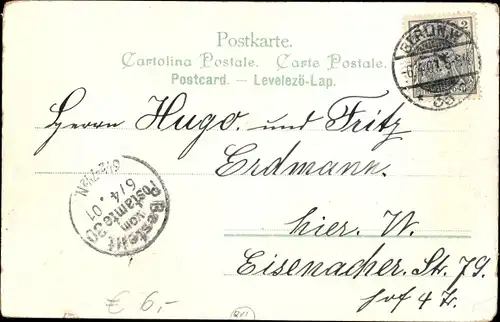 Postkarte.
Cartolina Postale. Carte Postale.
Postcard. — Levelezö-Lap.
BERLIN W
Herrn Hugo und Fritz
Erdmann.
hier. W.
Eisenacher. Str. 79.
Hof 4 Tr.
Bestellt
vom
Postamte 30
6/4.01
6½-7½N
£ 6,-